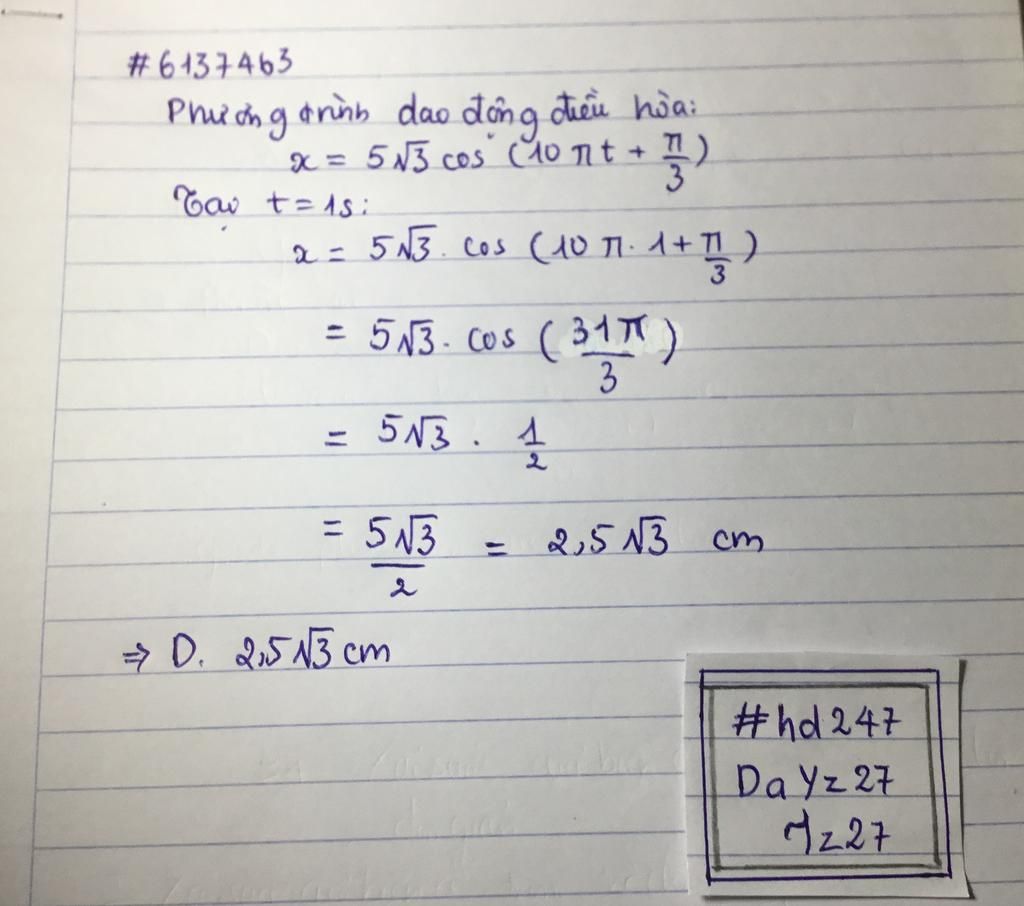 #6137463
Phương trình dao động điều hòa:
x = 5√3 cos (10 πt + π/3)
Tại t = 1s:
x = 5√3 . cos (10 π . 1 + π/3)
= 5√3 . cos (31π/3)
= 5√3 . 1/2
= 5√3/2 = 2,5√3 cm
⇒ D. 2,5√3 cm
#hd247
DaYz27